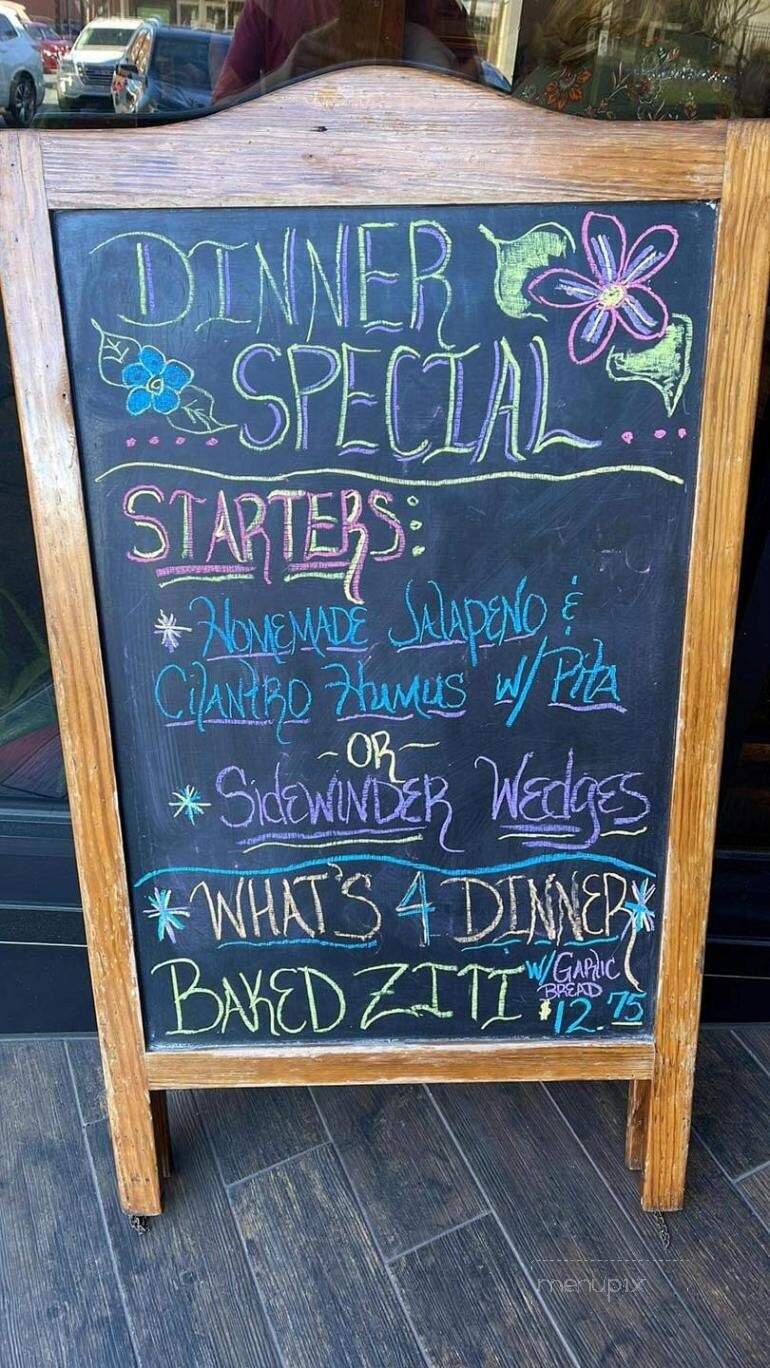 DINNER
SPECIAL
STARTERS:
* HOMEMADE JALAPENO &
CILANTRO HUMUS W/ PITA
~OR~
* SIDEWINDER WEDGES
* WHAT'S 4 DINNER *
BAKED ZITI W/ GARLIC
BREAD
$12.75
menupix